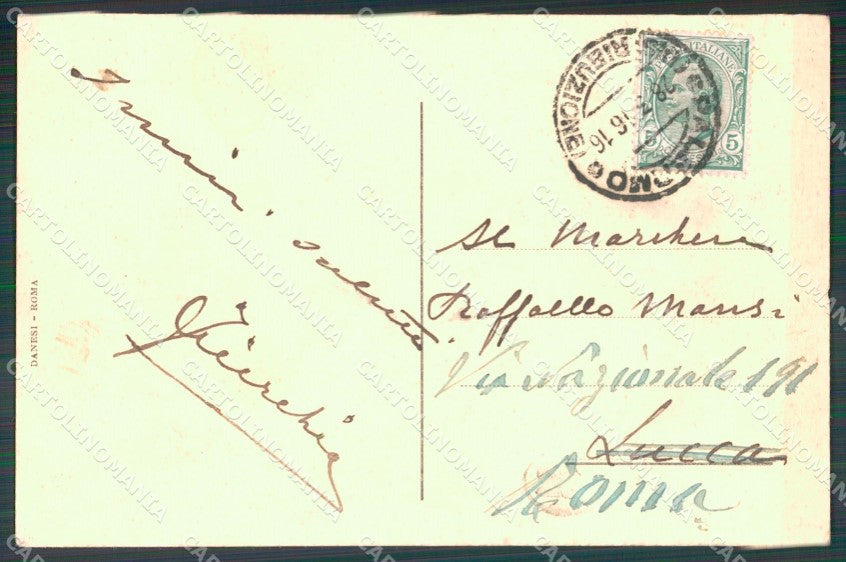 I miei saluti
DANESI - ROMA
ITALIANE
5 5
28 16 16
DISTRIBUZIONE
Al Marchese
Raffaello Mansi
Via Nazionale 191
Lucca
Roma
CARTOLINOMANIA